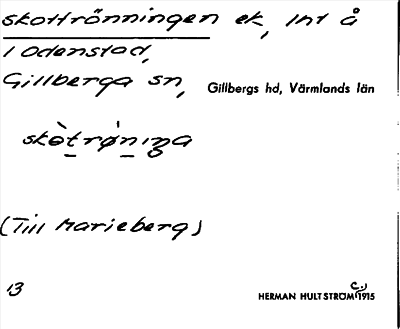 skottrönningen ek, Int å
i Odenstad,
Gillberga sn, Gillbergs hd, Värmlands län
skòtrǿniŋa
(Till Marieberg)
13
HERMAN HULTSTRÖM c.) 1915